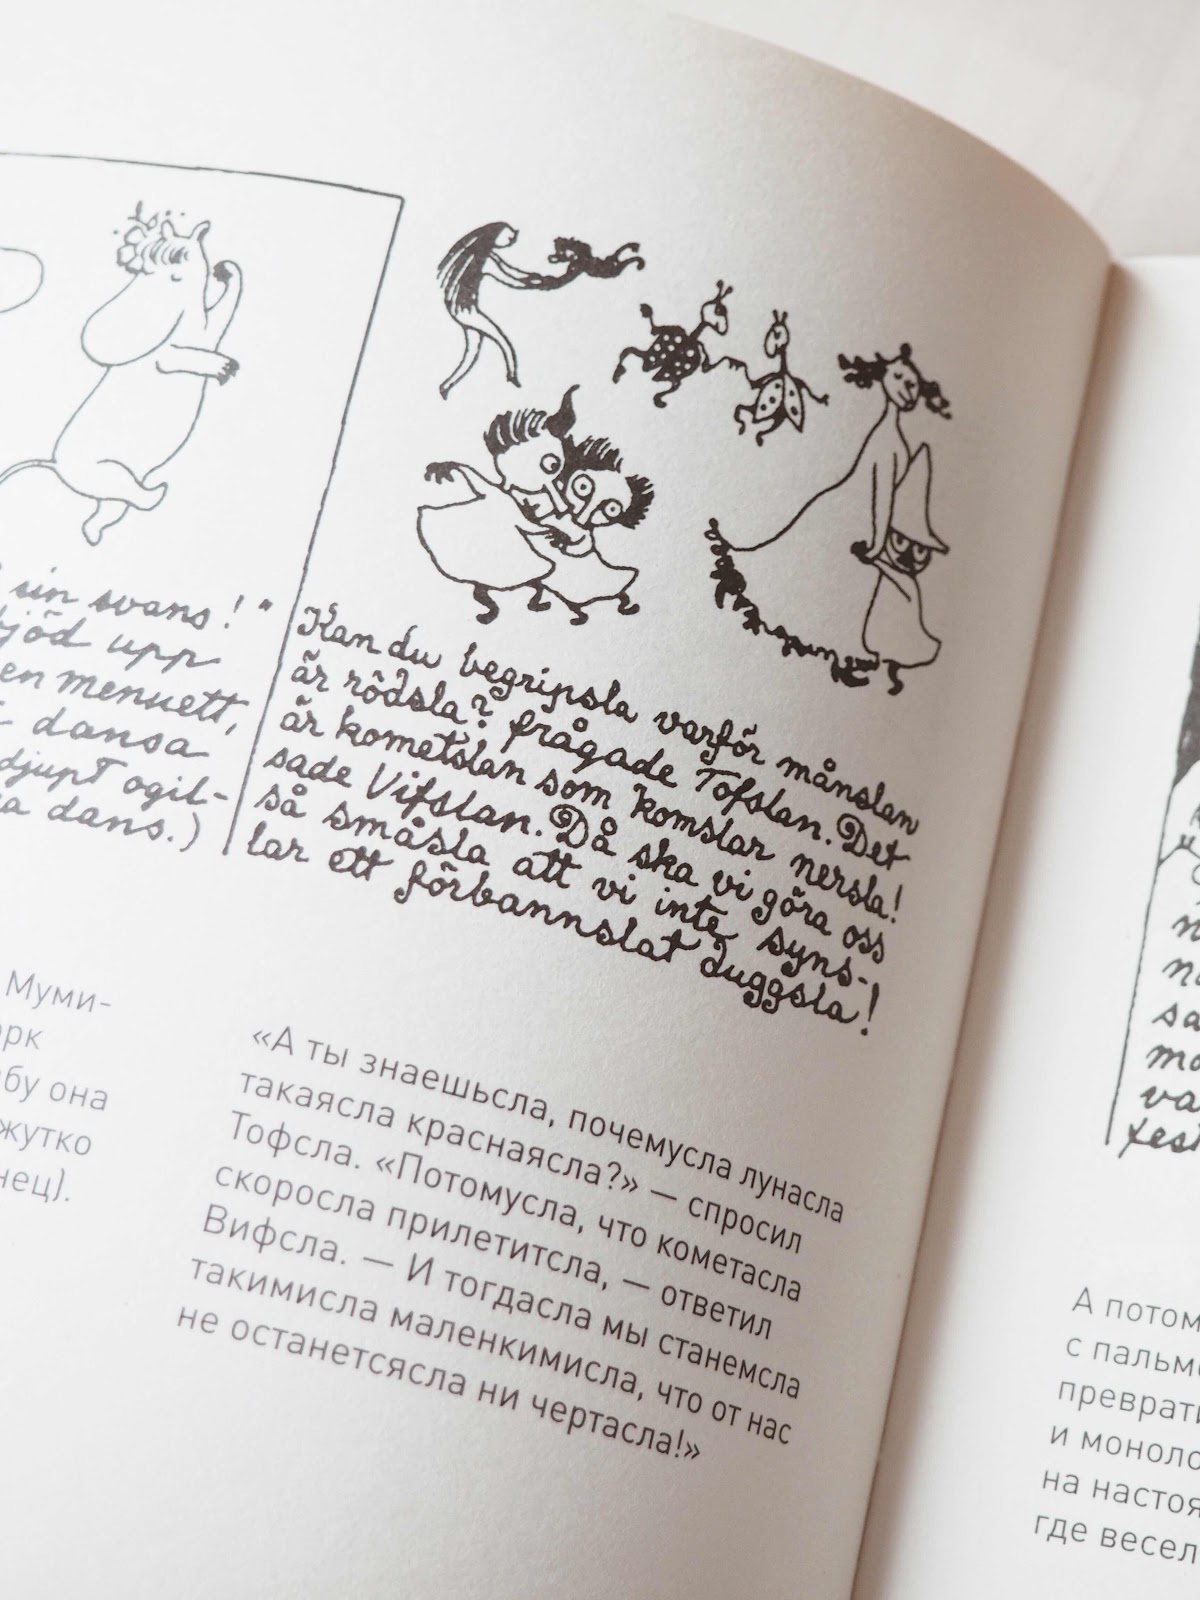 sin svans!"
jöd upp
en menuett,
dansa
djupt ogil-
a dans.)
Kan du begripsla varför månslan
är rödsla? frågade Tofslan. Det
är kometslan som komslar nersla!
sade Vifslan. Då ska vi göra oss
så småsla att vi inte syns-
lar ett förbannslat duggsla!
Муми-
рк
бу она
жутко
нец).
«А ты знаешьсла, почемусла лунасла
такаясла краснаясла?» — спросил
Тофсла. «Потомусла, что кометасла
скоросла прилетитсла, — ответил
Вифсла. — И тогдасла мы станемсла
такимисла маленкимисла, что от нас
не останетсясла ни чертасла!»
А потом
с пальм
преврати
и моноло
на настоя
где весел